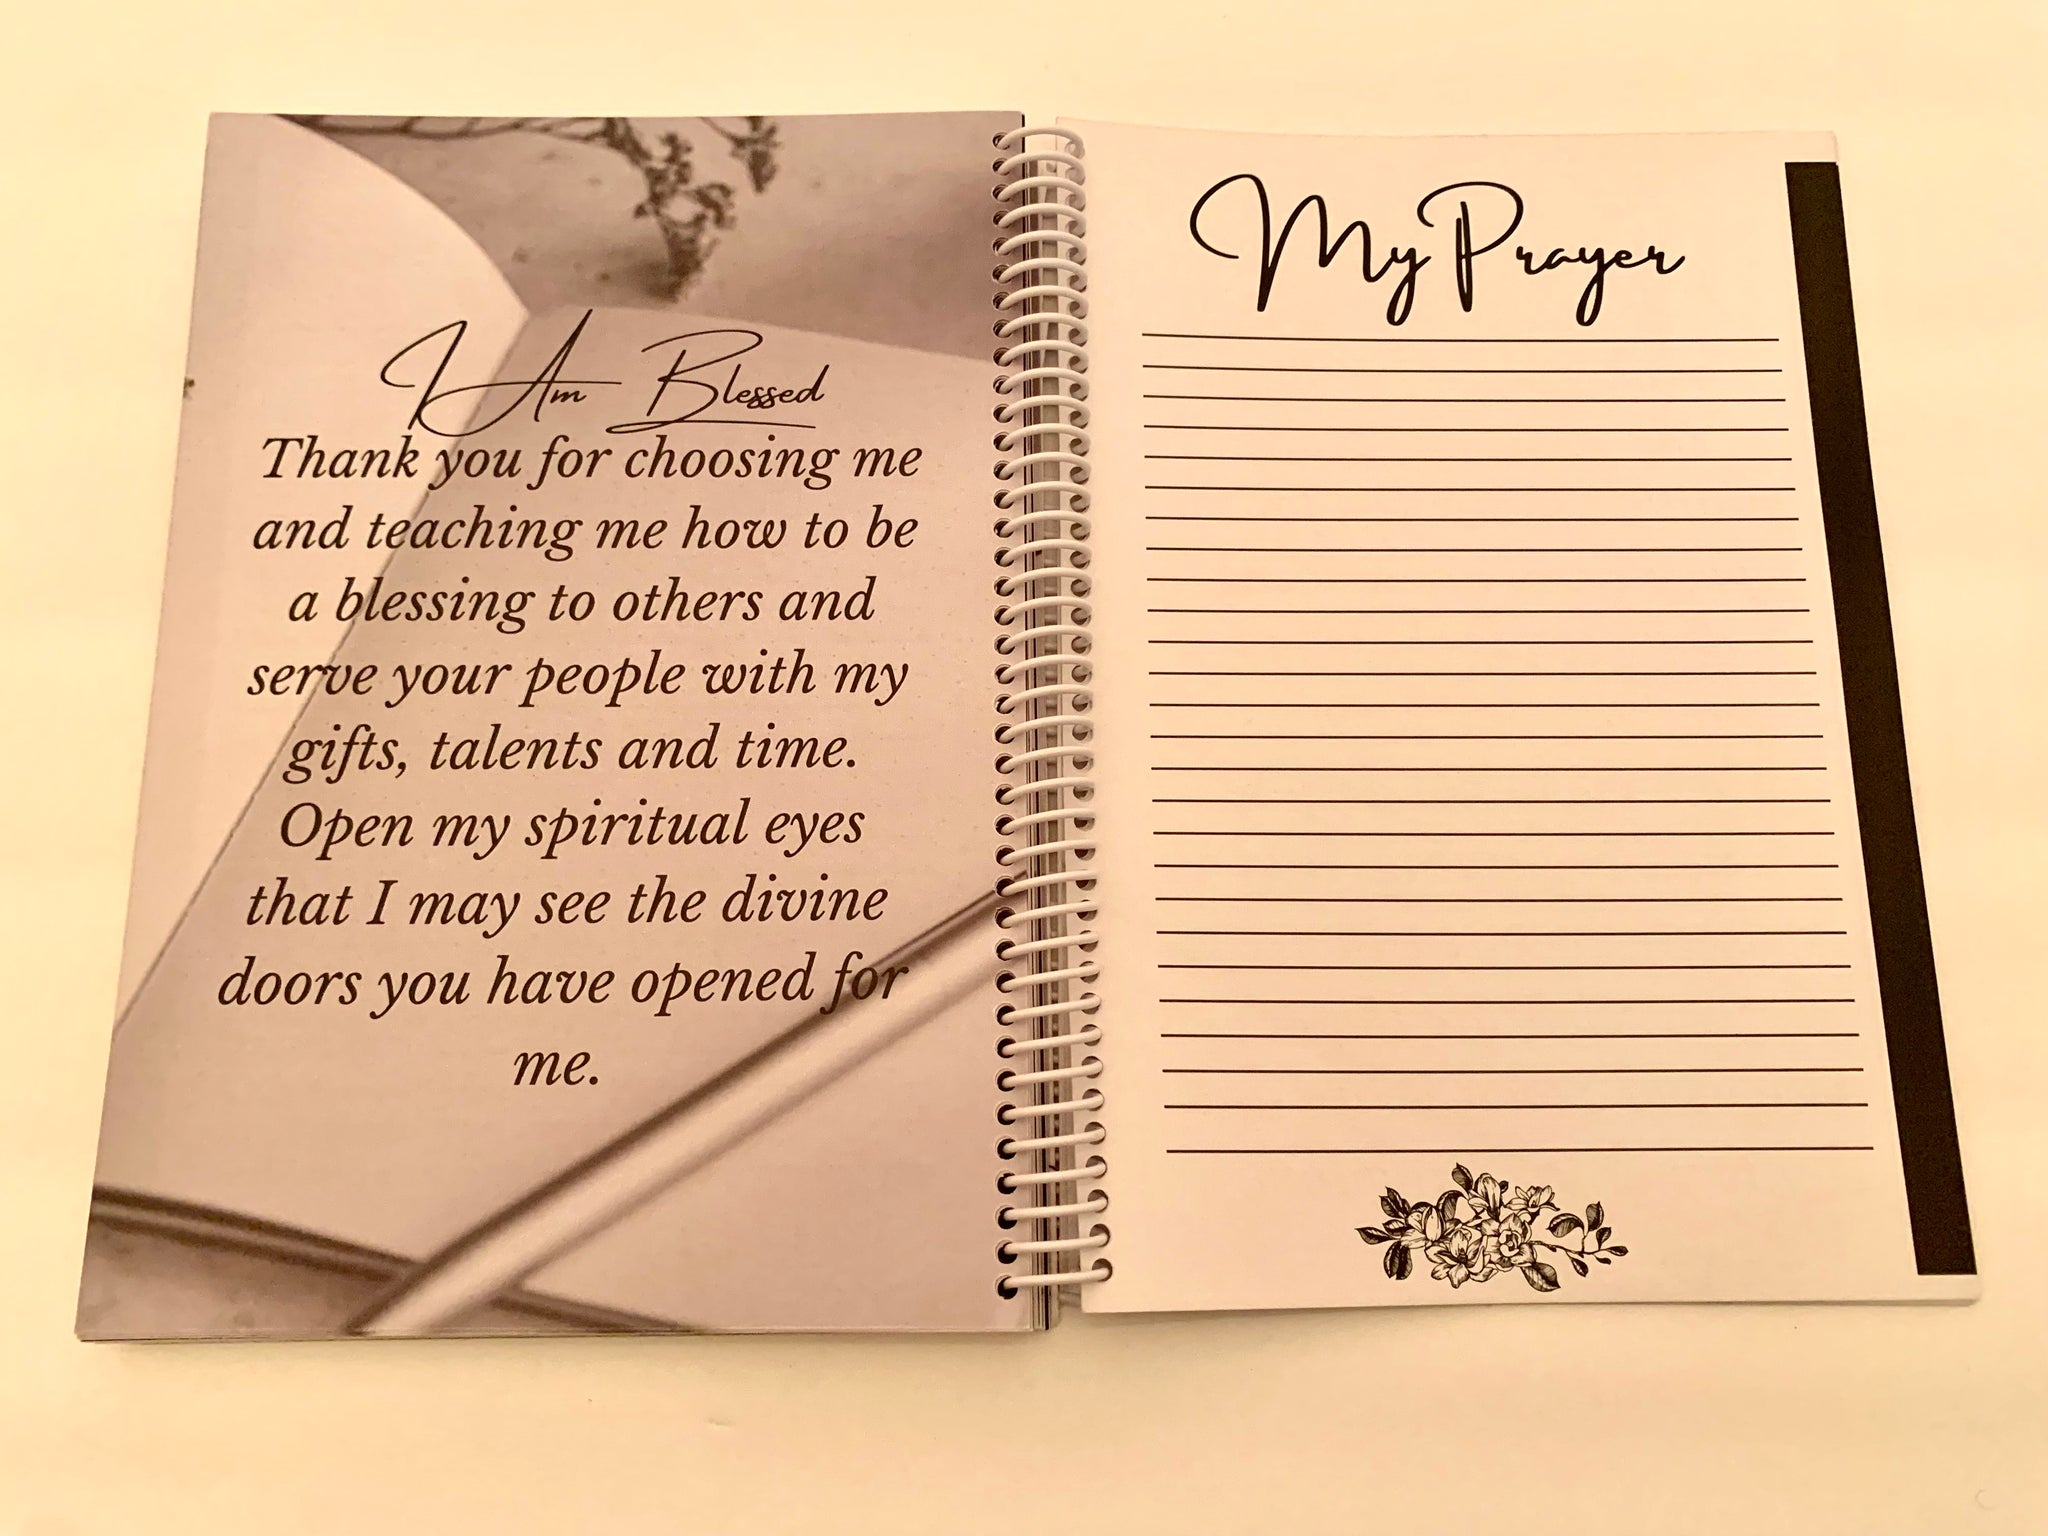 I Am Blessed
Thank you for choosing me
and teaching me how to be
a blessing to others and
serve your people with my
gifts, talents and time.
Open my spiritual eyes
that I may see the divine
doors you have opened for
me.
My Prayer